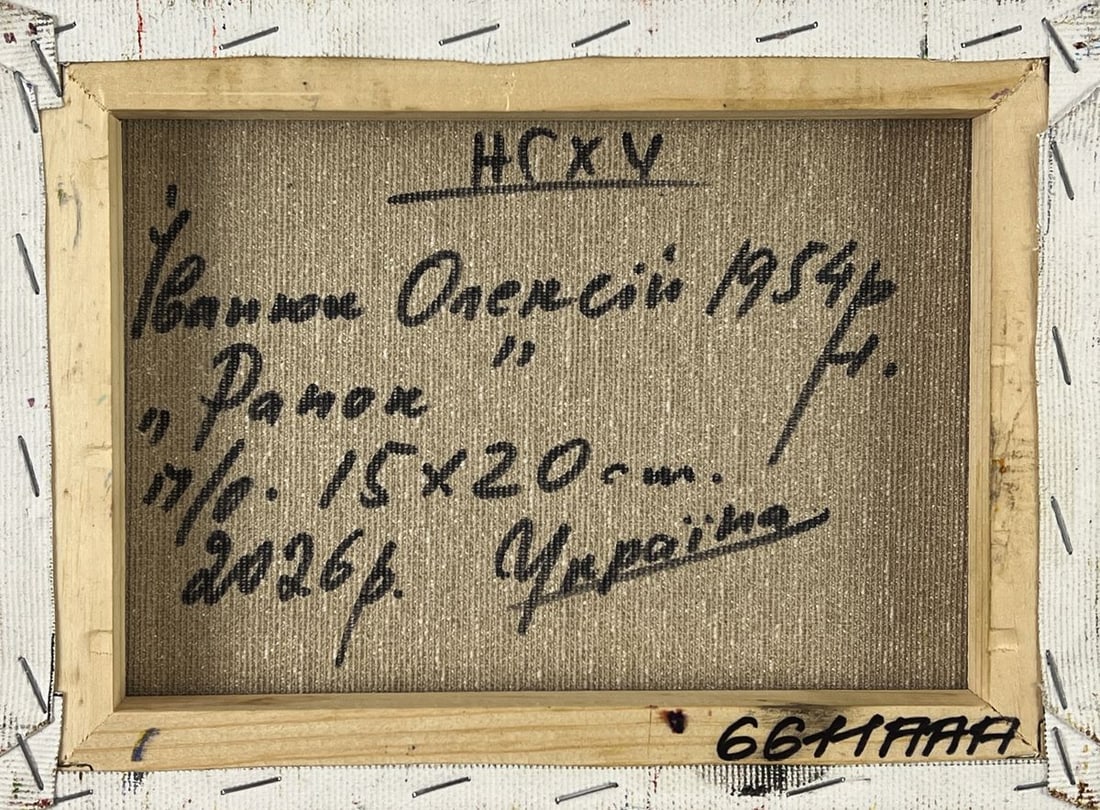 НСХУ
Іванюк Олексій 1954р
н.
„Ранок"
п/о. 15х20 см.
2026р. Україна
66HAAA